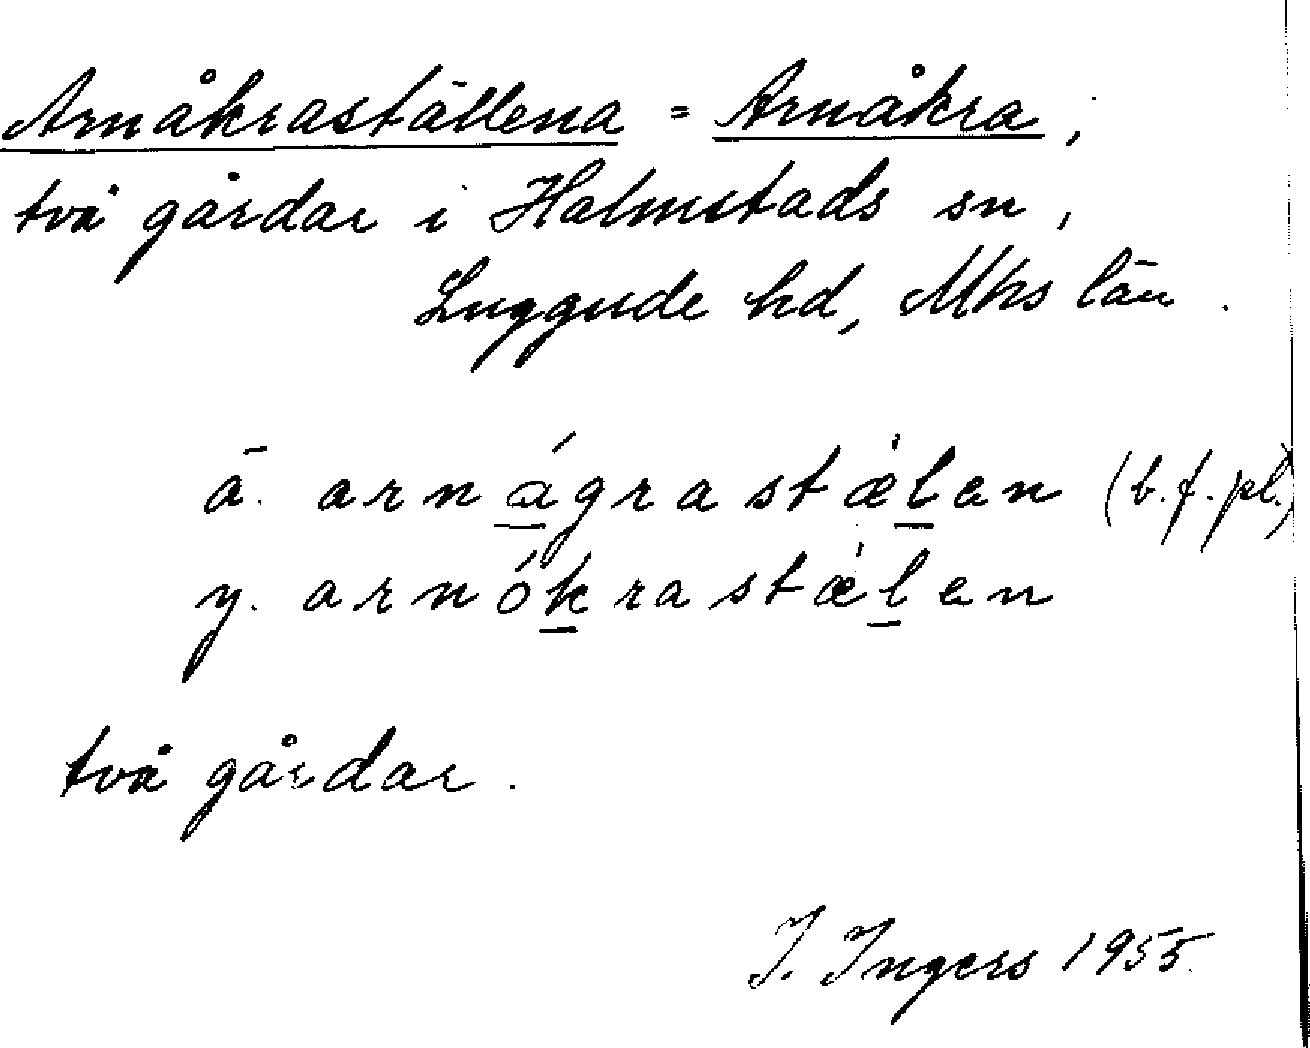 Arnåkraställena = Arnåkra,
två gårdar i Halmstads sn,
Luggude hd, Mhs län.
ä. arnágrastǽlen (b.f.pl.)
y. arnókrastǽlen
två gårdar.
I. Ingers 1955.